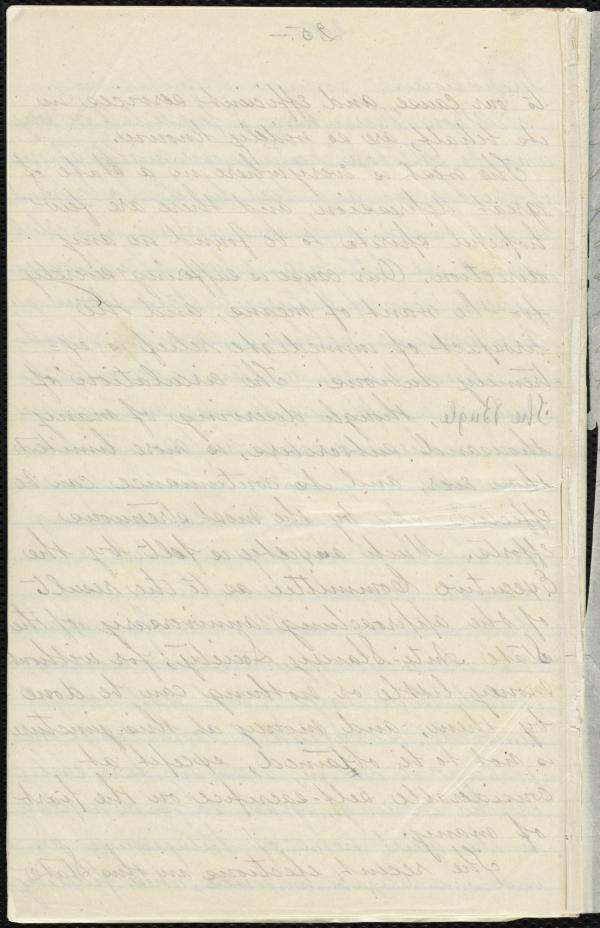 25.—
to our cause, and efficient services in
its behalf, are so widely known.
The west is everywhere in a state of
great depression, and there are few
hopeful spirits to be found in any
direction. Our cause is suffering severely
for the want of means, and the
prospect of immediate relief is ex=
tremely dubious. The circulation of
The Bugle, though deserving of many
thousand subscribers, is more limited
than ever, and its continuance can be
effected only by the most strenuous
efforts. Much anxiety is felt by the
Executive Committee as to the result
of the approaching anniversary of the
State Anti-Slavery Society; for without
money little or nothing can be done
by them, and money at this juncture
is not to be obtained, except at
considerable self-sacrifice on the part
of many.
The recent elections in this State,